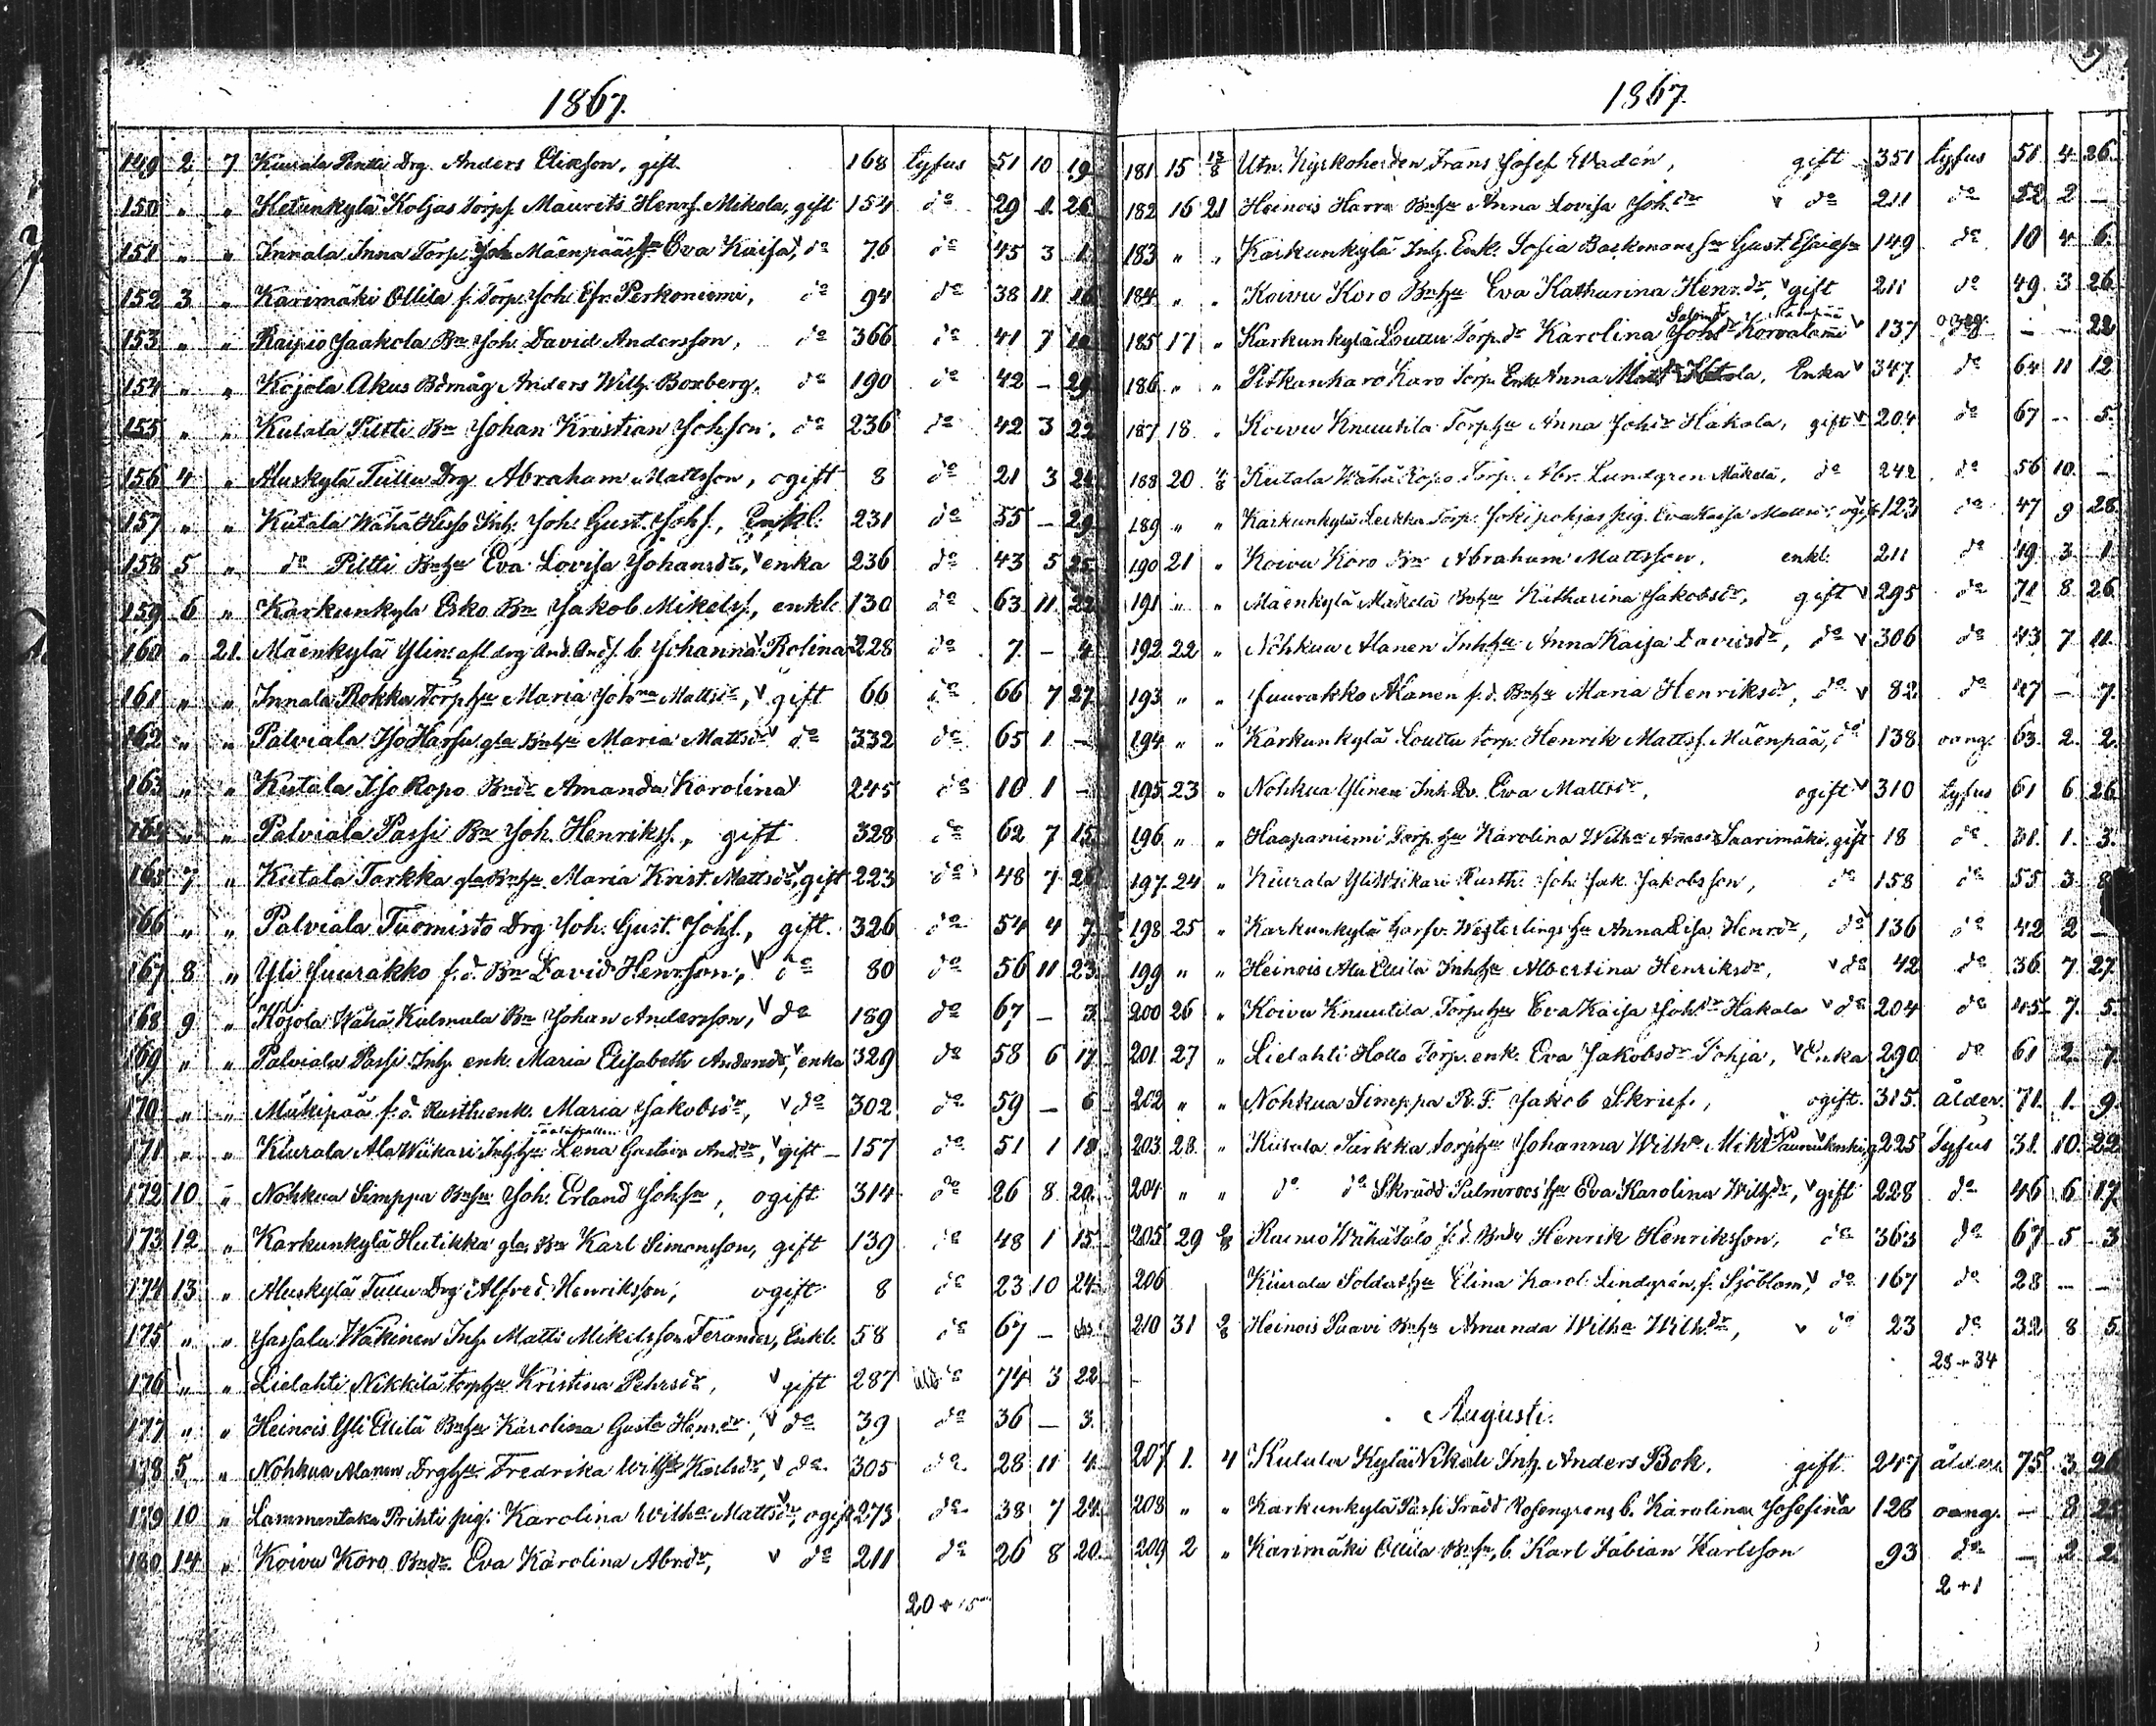 1867.
149 2 7 Kiurala Pentti Drg. Anders Eliæson, gift 168 tyfus 51 10 19
150 " " Ketunkylä Koljas Torpf. Maurits Henrs. Mikola, gift 154 do 29 1 26
151 " " Innala Inna Torp. Joh. Mäenpää's hu Eva Kaisa, do 76 do 45 3 1
152 3 " Karimäki Ollila f. Torp. Joh. Efr. Perkoniemi, do 94 do 38 11 16
153 " " Raipio Jaakola Bn Joh. David Andersson, do 366 do 41 7
154 " " Kojola Akus Bdmåg Anders Wilh. Boxberg, do 190 do 42 –
155 " " Kutala Piltti Bn Johan Kristian Johsson, do 236 do 42 3 22
156 4 " Aluskylä Tullu Drg Abraham Mattsson, ogift 8 do 21 3
157 " " Kutala Wähä Hiiso Inh. Joh. Gust. Johs., Enkl. 231 do 55 – 29
158 5 " do Piltti Bnhu Eva Lovisa Johansdr, v enka 236 do 43 5 25
159 6 " Karkunkylä Esko Bn Jakob Mikelss., enkl. 130 do 63 11 22
160 " 21 Mäenkylä Ylin. afl. drg And. Ands. b. Johanna v Rolina 228 do 7 – 4
161 " " Innala Rokka Torphu Maria Johna Mattsdr, v gift 66 do 66 7 27
162 " " Palviala Iso Harsu gla Bnhu Maria Mattsdr v do 332 do 65 1 –
163 " " Kutala Iso Ropo Bndr Amanda Karolina v 245 do 10 1 –
164 " " Palviala Passi Bn Joh. Henrikss., gift 328 do 62 7 15
165 7 " Kutala Tarkka gla Bnhu Maria Krist. Mattsdr, v gift 223 do 48 7
166 " " Palviala Tuomisto Drg Joh. Gust. Johs., gift. 326 do 54 4 7
167 8 " Yli Juurakko f.d. Bn David Henrsson, v do 80 do 56 11 23
168 9 " Kojola Wähä Kulmala Bn Johan Andersson, v do 189 do 67 – 3
169 " " Palviala Passi Inh. enk. Maria Elisabeth Andersdr, v enka 329 do 58 6 17
170 " " Mäkipää f.d. Rusthenk. Maria Jakobsdr, v do 302 do 59 – 6
171 " " Kiurala Ala Wiikari Inhhu Lena Gustava Andrdr, v gift 157 do 51 1 18
172 10 " Nohkua Simppa Bnsn Joh. Erland Johsn, ogift 314 do 26 8 20
173 12 " Karkunkylä Hutikka gla Bn Karl Simonsson, gift 139 do 48 1 15
174 13 " Aluskylä Tullu Drg Alfred Henriksson, ogift 8 do 23 10 24
175 " " Jassala Wäkinen Inh. Matti Mikelsson Terander, Enkl. 58 do 67 –
176 " " Lielahti Nikkilä Torphu Kristina Pehrsdr, v gift 287 do 74 3 22
177 " " Heinois Yli Ellilä Bnhu Karolina Gusta Henrdr, v do 39 do 36 – 3
178 5 " Nohkua Alanen Drghu Fredrika Wilhа Karlsdr, v do 305 do 28 11 4
179 10 " Lammentaka Prihti pig. Karolina Wilha Mattsdr, v ogift 273 do 38 7 24
180 14 " Koivu Koro Bndr Eva Karolina Abrdr, v do 211 do 26 8 20
20+15
1867.
181 15 13/8 Utn. Kyrkoherden Frans Josef Wadén, gift 351 tyfus 51 4 26
182 16 21 Heinois Harra Bnhu Anna Lovisa Joh.dr v do 211 do 52 2 –
183 " " Karkunkylä Inh. Enk. Sofia Backmans sn Gust. Esaias 149 do 10 4 6
184 " " Koivu Koro Bnhu Eva Katharina Henr.dr, v gift 211 do 49 3 26
185 17 " Karkunkylä Louttu Torp.dr Karolina Johdr v 137 oang. – – 22
186 " " Pitkanharo Karo Torp. Enk. Anna, Enka v 347 do 64 11 12
187 18 " Koivu Knuutila Torphu Anna Johdr Hakala, gift v 204 do 67 – 5
188 20 4/8 Kutala Wähä Ropo Torp. Abr. Lundgren Mäkelä, do 242 do 56 10 –
189 " " Karkunkylä Leikka Torp. Jokipohjas pig. Eva Kaisa Mattsdr v ogift 123 do 47 9 28
190 21 " Koivu Koro Bn Abraham Mattsson, enkl. 211 do 49 3 1
191 " " Mäenkylä Mäkelä Bnhu Katharina Jakobsdr, gift v 295 do 71 8 26
192 22 " Nohkua Alanen Inhhu Anna Kaisa Davidsdr, do v 306 do 43 7 11
193 " " Juurakko Alanen f.d. Bnhu Maria Henriksdr, do v 82 do 47 – 7
194 " " Karkunkylä Louttu torp. Henrik Mattss. Mäenpää, do 138 oang. 63 2 2
195 23 " Nohkua Ylinen Inh. Qv. Eva Mattsdr, ogift v 310 tyfus 61 6 26
196 " " Haapaniemi Torp.hu Karolina Wilha Anasdr Saarimäki, v gift 18 do 31 1 3
197 24 " Kiurala Yli Wiikari Rusth. Joh. Jak. Jakobsson, do 158 do 55 3 8
198 25 " Karkunkylä Garfv. Westerlings hu Anna Lisa Henrdr, v do 136 do 42 2 –
199 " " Heinois Ala Ellilä Inhhu Albertina Henriksdr, v do 42 do 36 7 27
200 26 " Koivu Knuutila Torphu Eva Kaisa Joh.dr Hakala v do 204 do 45 7 5
201 27 " Lielahti Hollo Torp. enk. Eva Jakobsdr Sohja, v Enka 290 do 61 2 7
202 " " Nohkua Simppa R.F. Jakob Skruf, ogift 315 ålder. 71 1 9
203 28 " Kutala Tarkka torphu Johanna Wilha Mikdr 225 Tyfus 31 10 22
204 " " do do Skrädd. Palmroos' hu Eva Karolina Wilhdr, v gift 228 do 46 6 17
205 29 2/8 Raimo Wähä Talo f.d. Bnde Henrik Henriksson, do 363 do 67 5 3
206 Kiurala Soldathu Elina Karol. Lindgrén, f. Sjöblom, v do 167 do 28 – –
210 31 2/8 Heinois Paavi Bnhu Amanda Wilha Wilh.dr, v do 23 do 32 8 5
23+34
Augusti.
207 1. 4 Kutala Kylä Nikkilä Inh. Anders Bok, gift 247 ålder. 75 3 26
208 " " Karkunkylä Pärssi Skrädd. Rosengrens b. Karolina Josefina v 126 oang. – 8 25
209 2 " Karimäki Ollila Bnsn, b. Karl Fabian Karlsson 93 do – 2 2
2+1